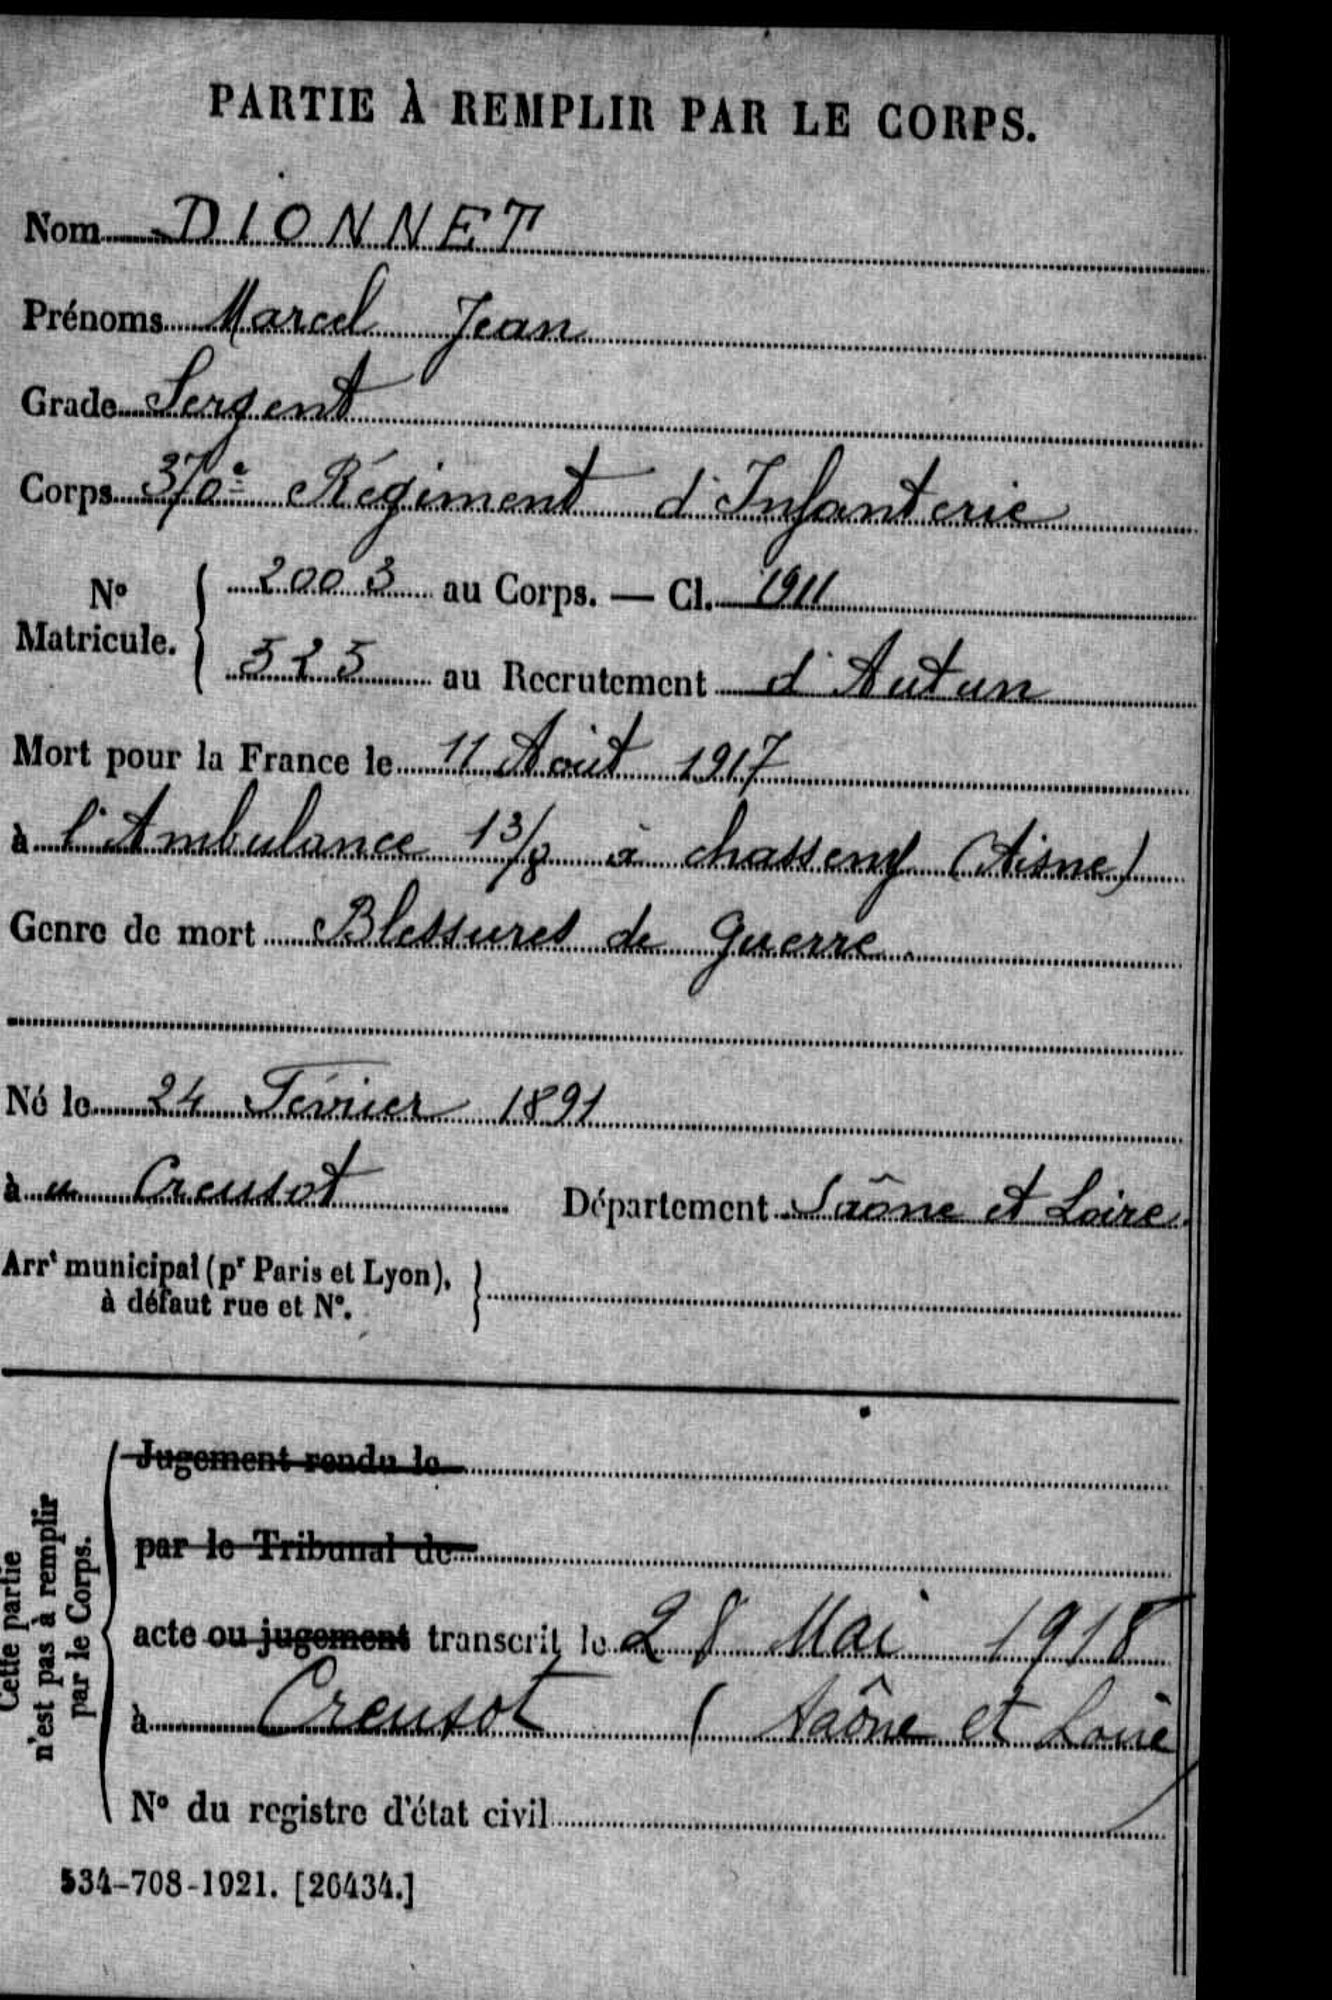 PARTIE À REMPLIR PAR LE CORPS.
Nom DIONNET
Prénoms Marcel Jean
Grade Sergent
Corps 370e Régiment d'Infanterie
No Matricule. 2003 au Corps. — Cl. 1911
525 au Recrutement d'Autun
Mort pour la France le 11 Août 1917
à l'Ambulance 13/8 à chassemy (Aisne)
Genre de mort Blessures de guerre.
Né le 24 Février 1891
à Creusot Département Saône et Loire.
Arrt municipal (pr Paris et Lyon),
à défaut rue et No.
Cette partie
n'est pas à remplir
par le Corps.
Jugement rendu le
par le Tribunal de
acte ou jugement transcrit le 28 Mai 1918
à Creusot (Saône et Loire)
No du registre d'état civil
534-708-1921. [26434.]